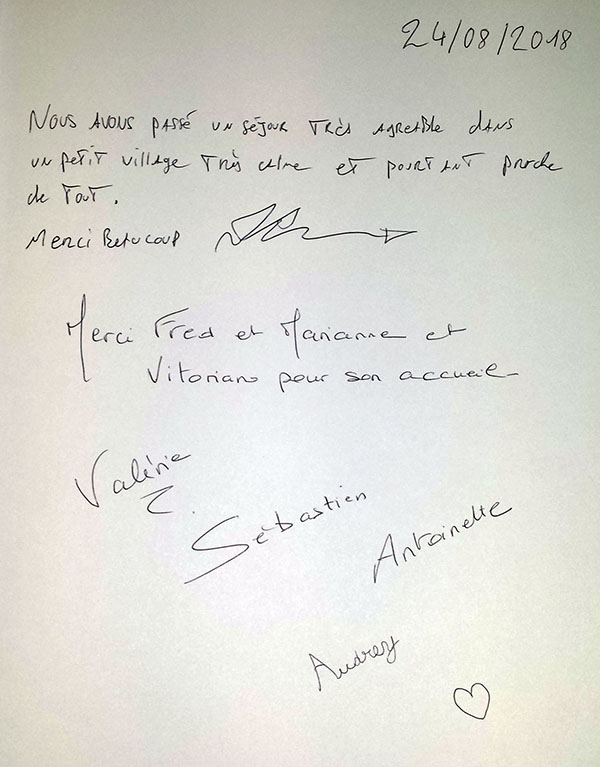 24/08/2018
Nous avons passé un séjour très agréable dans
un petit village très calme et pourtant proche
de tout.
Merci Beaucoup
Merci Fred et Marianne et
Vitoriano pour son accueil
Valérie
Sébastien
Antoinette
Audrey